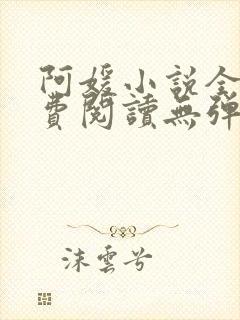 阿媛小說全
費閱讀無彈
沫雲兮